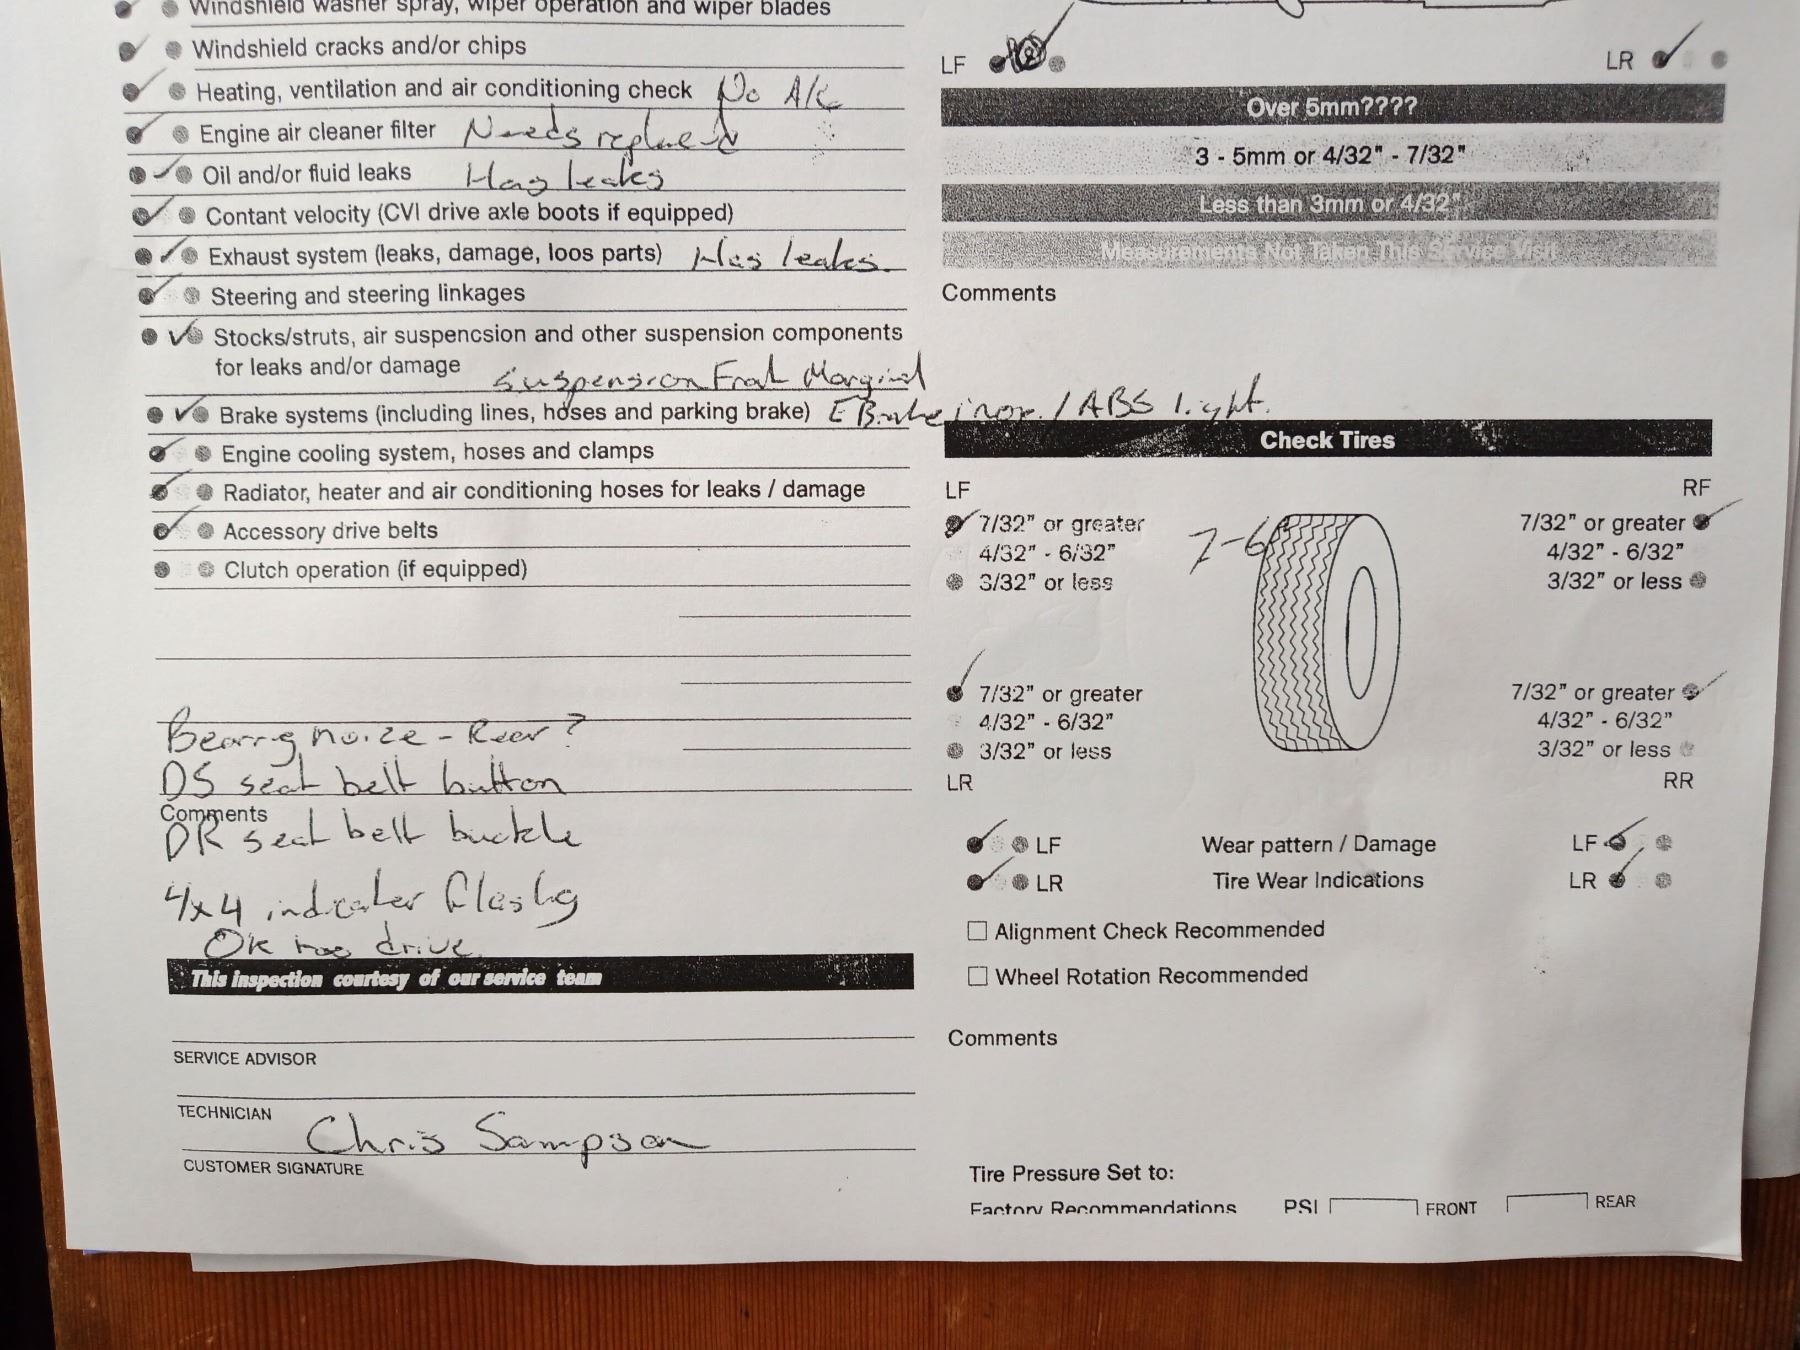 Windshield washer spray, wiper operation and wiper blades
Windshield cracks and/or chips
Heating, ventilation and air conditioning check No A/C
Engine air cleaner filter Needs replaced
Oil and/or fluid leaks Has leaks
Contant velocity (CVI drive axle boots if equipped)
Exhaust system (leaks, damage, loos parts) Has leaks.
Steering and steering linkages
Stocks/struts, air suspencsion and other suspension components
for leaks and/or damage Suspension Front Marginal
Brake systems (including lines, hoses and parking brake) E Brake inop. / ABS light.
Engine cooling system, hoses and clamps
Radiator, heater and air conditioning hoses for leaks / damage
Accessory drive belts
Clutch operation (if equipped)
Bearing noize - Rear?
DS seat belt button
Comments
DR seat belt buckle
4x4 indicater flashg
OK drive.
This inspection courtesy of our service team
SERVICE ADVISOR
TECHNICIAN
Chris Sampson
CUSTOMER SIGNATURE
LF LR
Over 5mm????
3 - 5mm or 4/32" - 7/32"
Less than 3mm or 4/32"
Measurements Not Taken This Service Visit
Comments
Check Tires
LF RF
7/32" or greater 7-6 7/32" or greater
4/32" - 6/32" 4/32" - 6/32"
3/32" or less 3/32" or less
7/32" or greater 7/32" or greater
4/32" - 6/32" 4/32" - 6/32"
3/32" or less 3/32" or less
LR RR
LF Wear pattern / Damage LF
LR Tire Wear Indications LR
Alignment Check Recommended
Wheel Rotation Recommended
Comments
Tire Pressure Set to:
Factory Recommendations PSI FRONT REAR